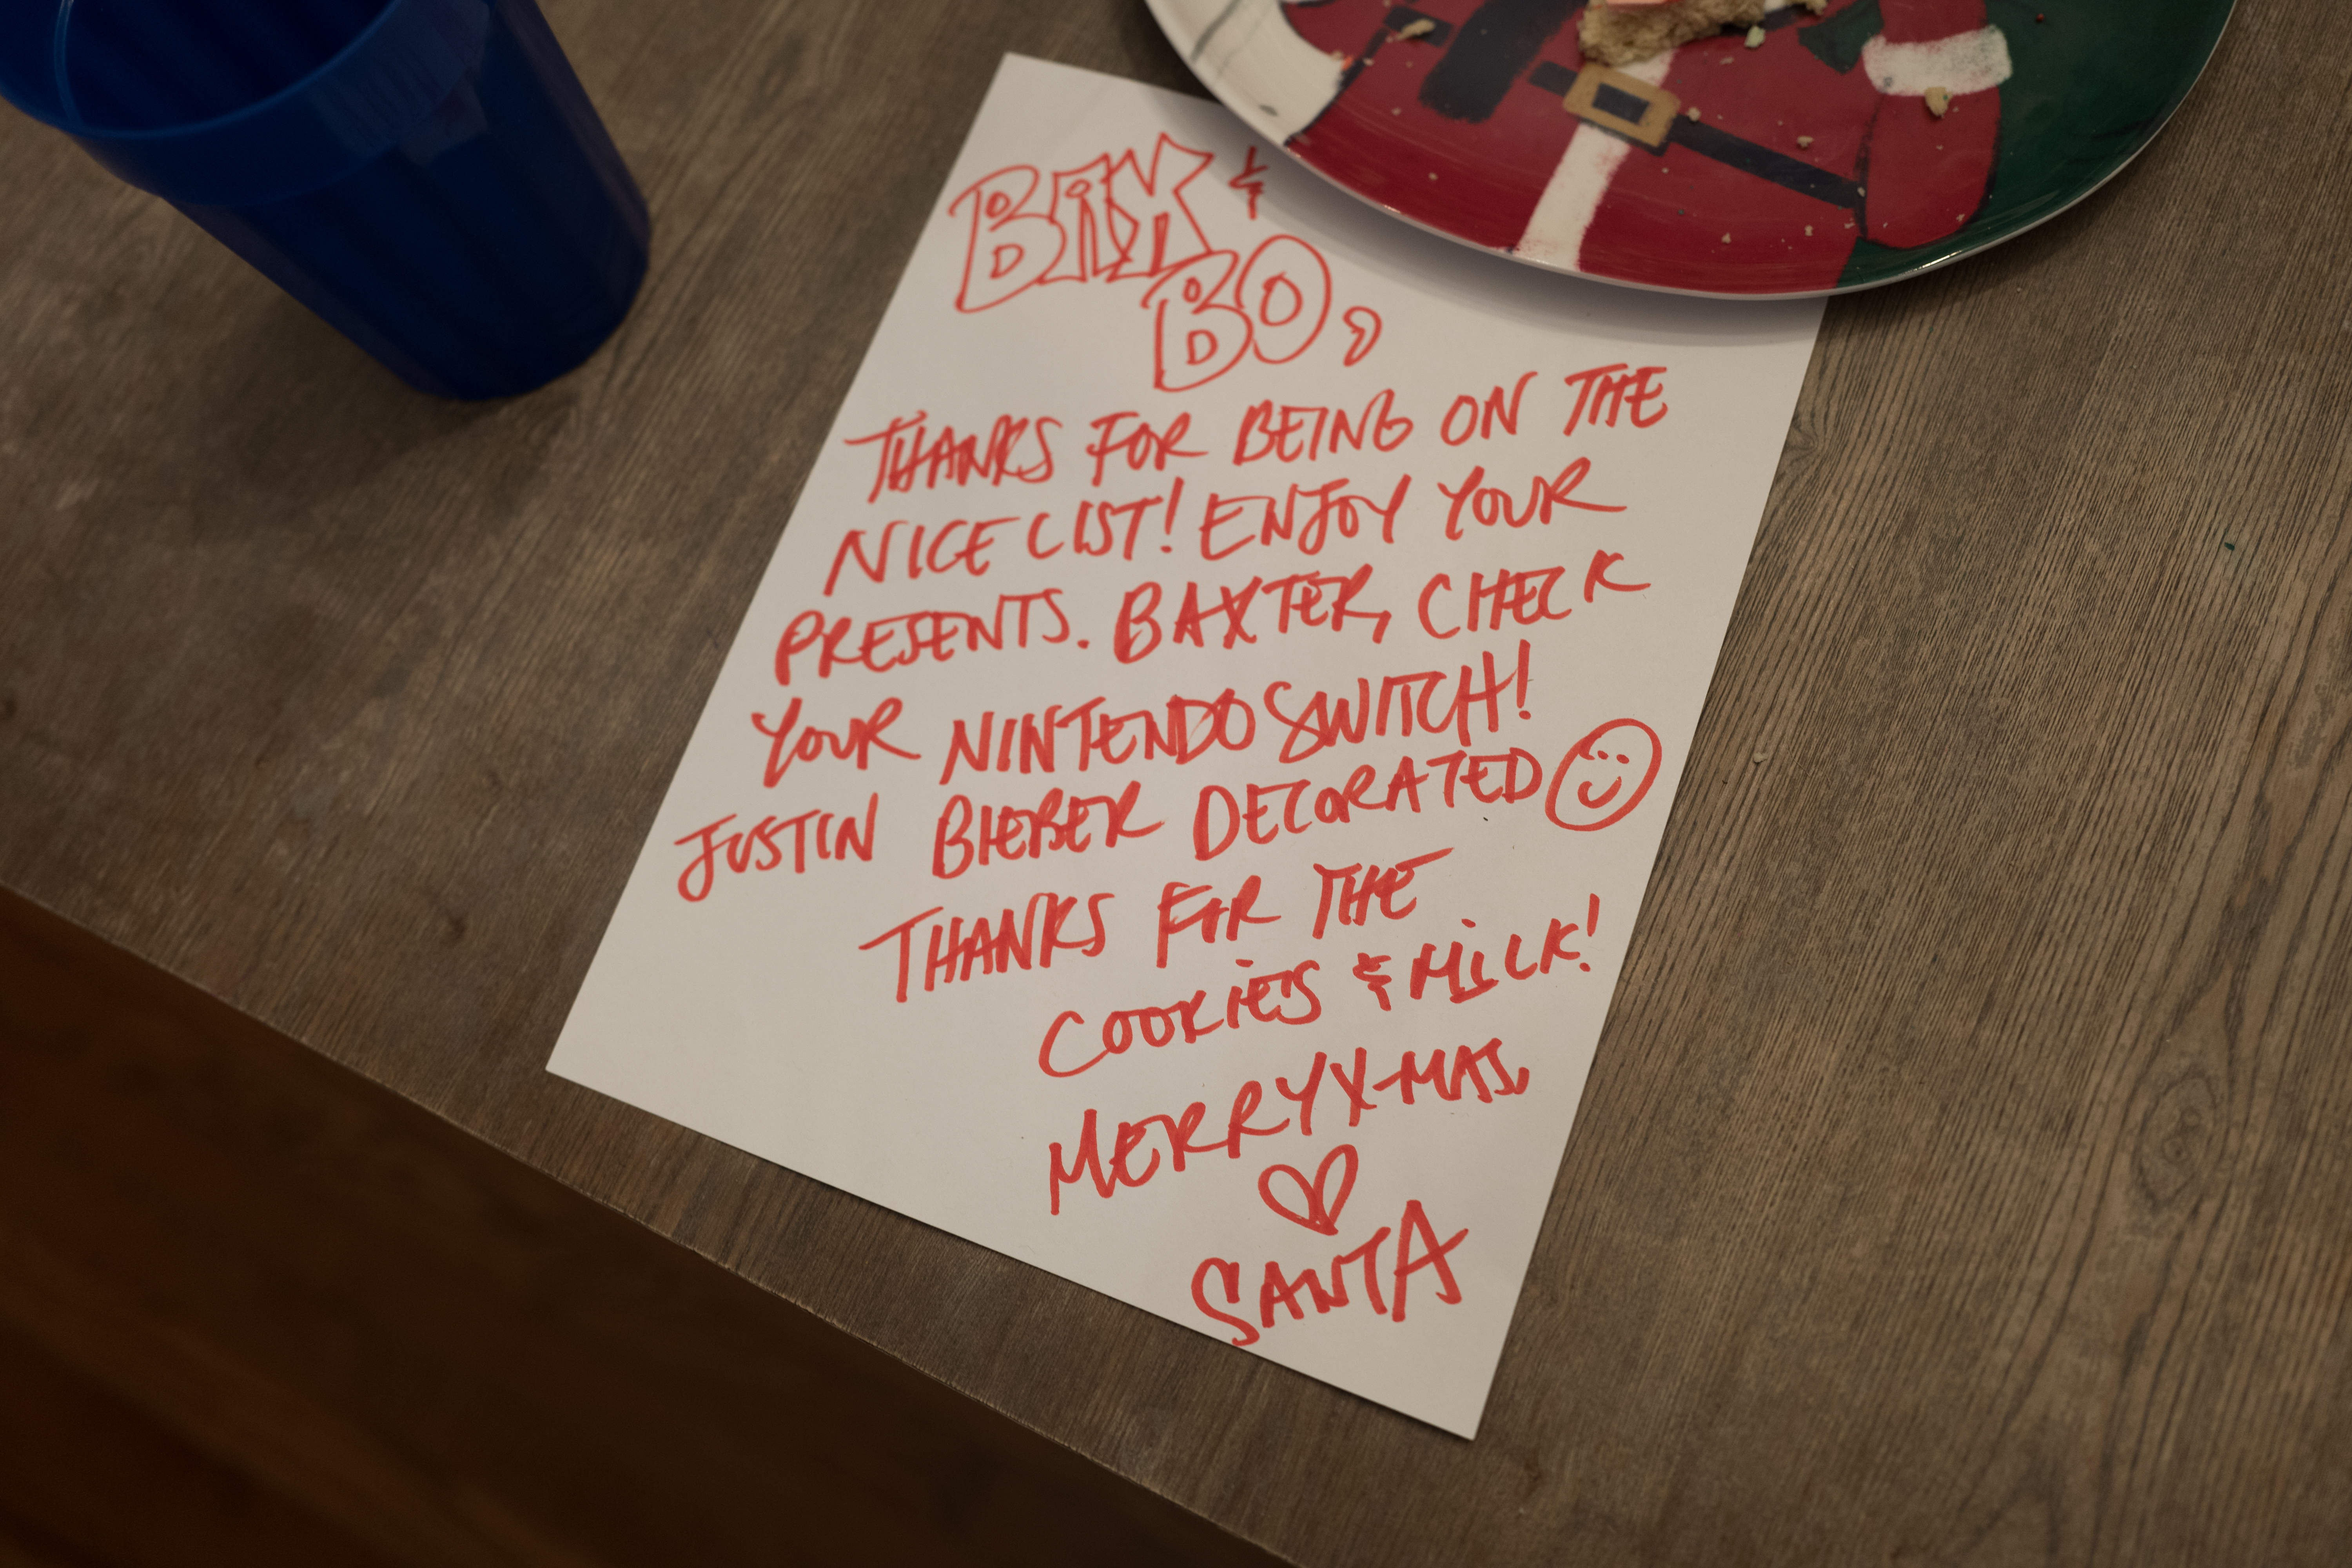 BAX &
BO,
THANKS FOR BEING ON THE
NICE LIST! ENJOY YOUR
PRESENTS. BAXTER, CHECK
YOUR NINTENDO SWITCH!
JUSTIN BIEBER DECORATED
THANKS FOR THE
COOKIES & MILK!
MERRY X-MAS,
SANTA